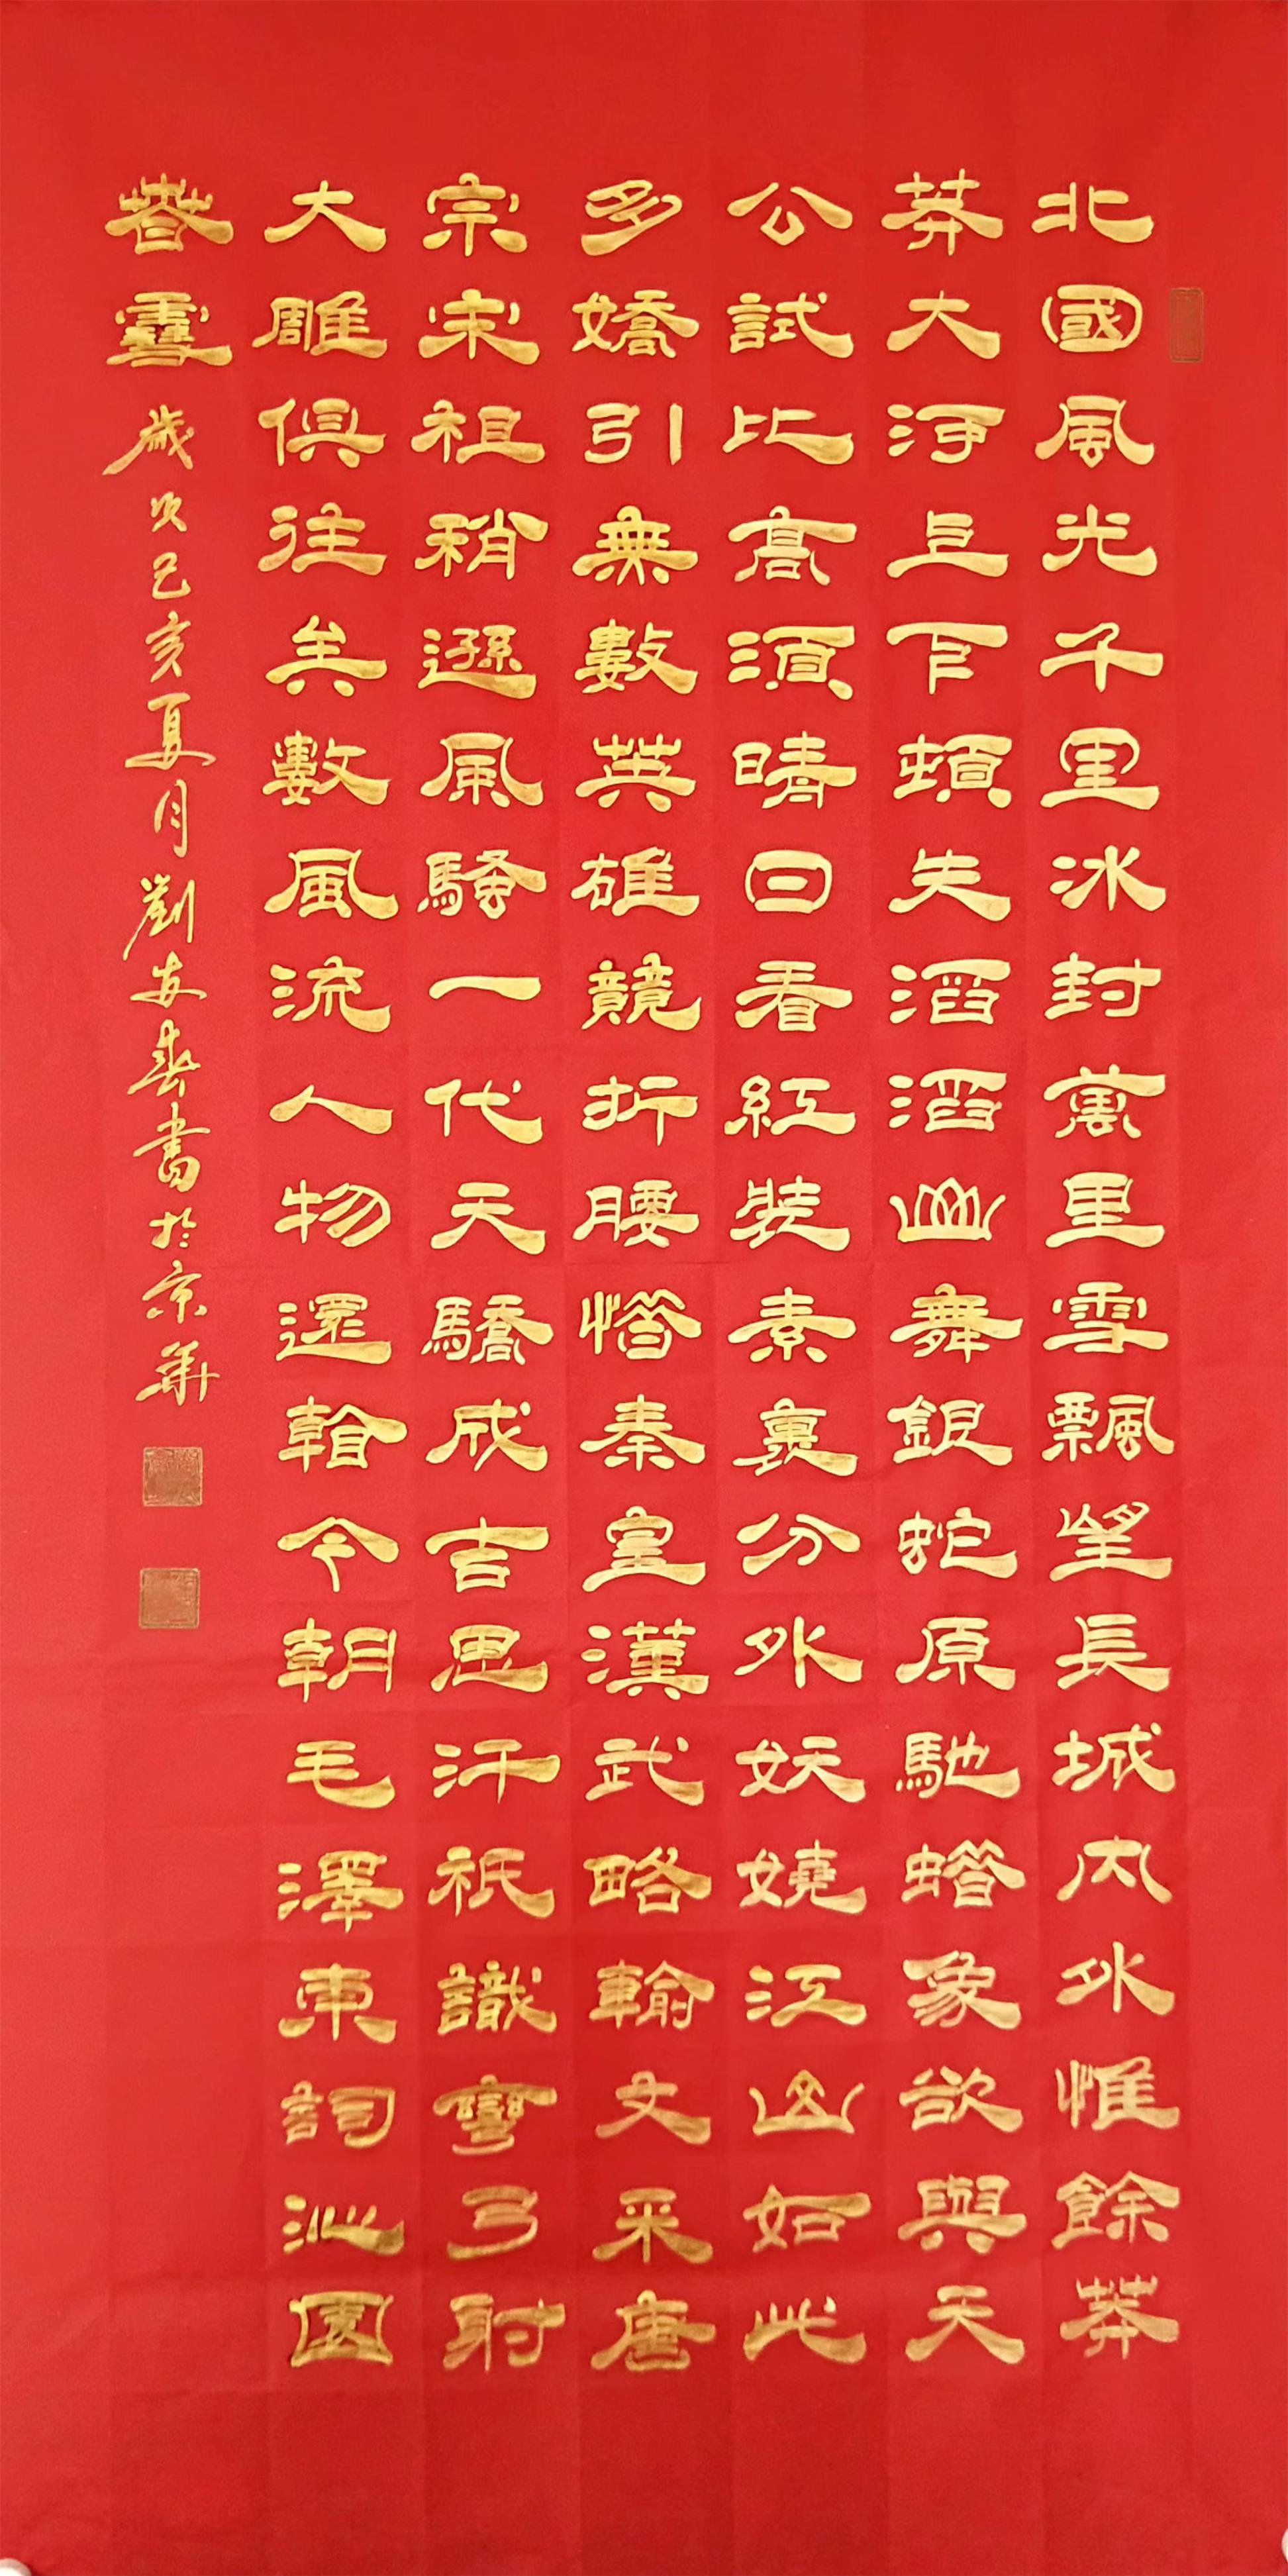 北國風光千里冰封萬里雪飄望長城内外惟餘莽
莽大河上下頓失滔滔山舞銀蛇原馳蜡象欲與天
公試比高須晴日看紅裝素裹分外妖嬈江山如此
多嬌引無數英雄競折腰惜秦皇漢武略輸文采唐
宗宋祖稍遜風騷一代天驕成吉思汗祇識彎弓射
大雕俱往矣數風流人物還看今朝毛澤東詞沁園
春雪 歲次己亥夏月劉安春書於京華